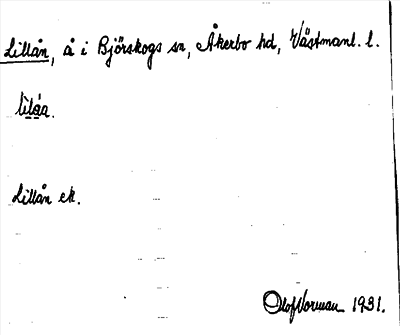 Lillån, å i Björskogs sn, Åkerbo hd, Västmanl. l.
Lillån ek.
Olof Norman 1931.